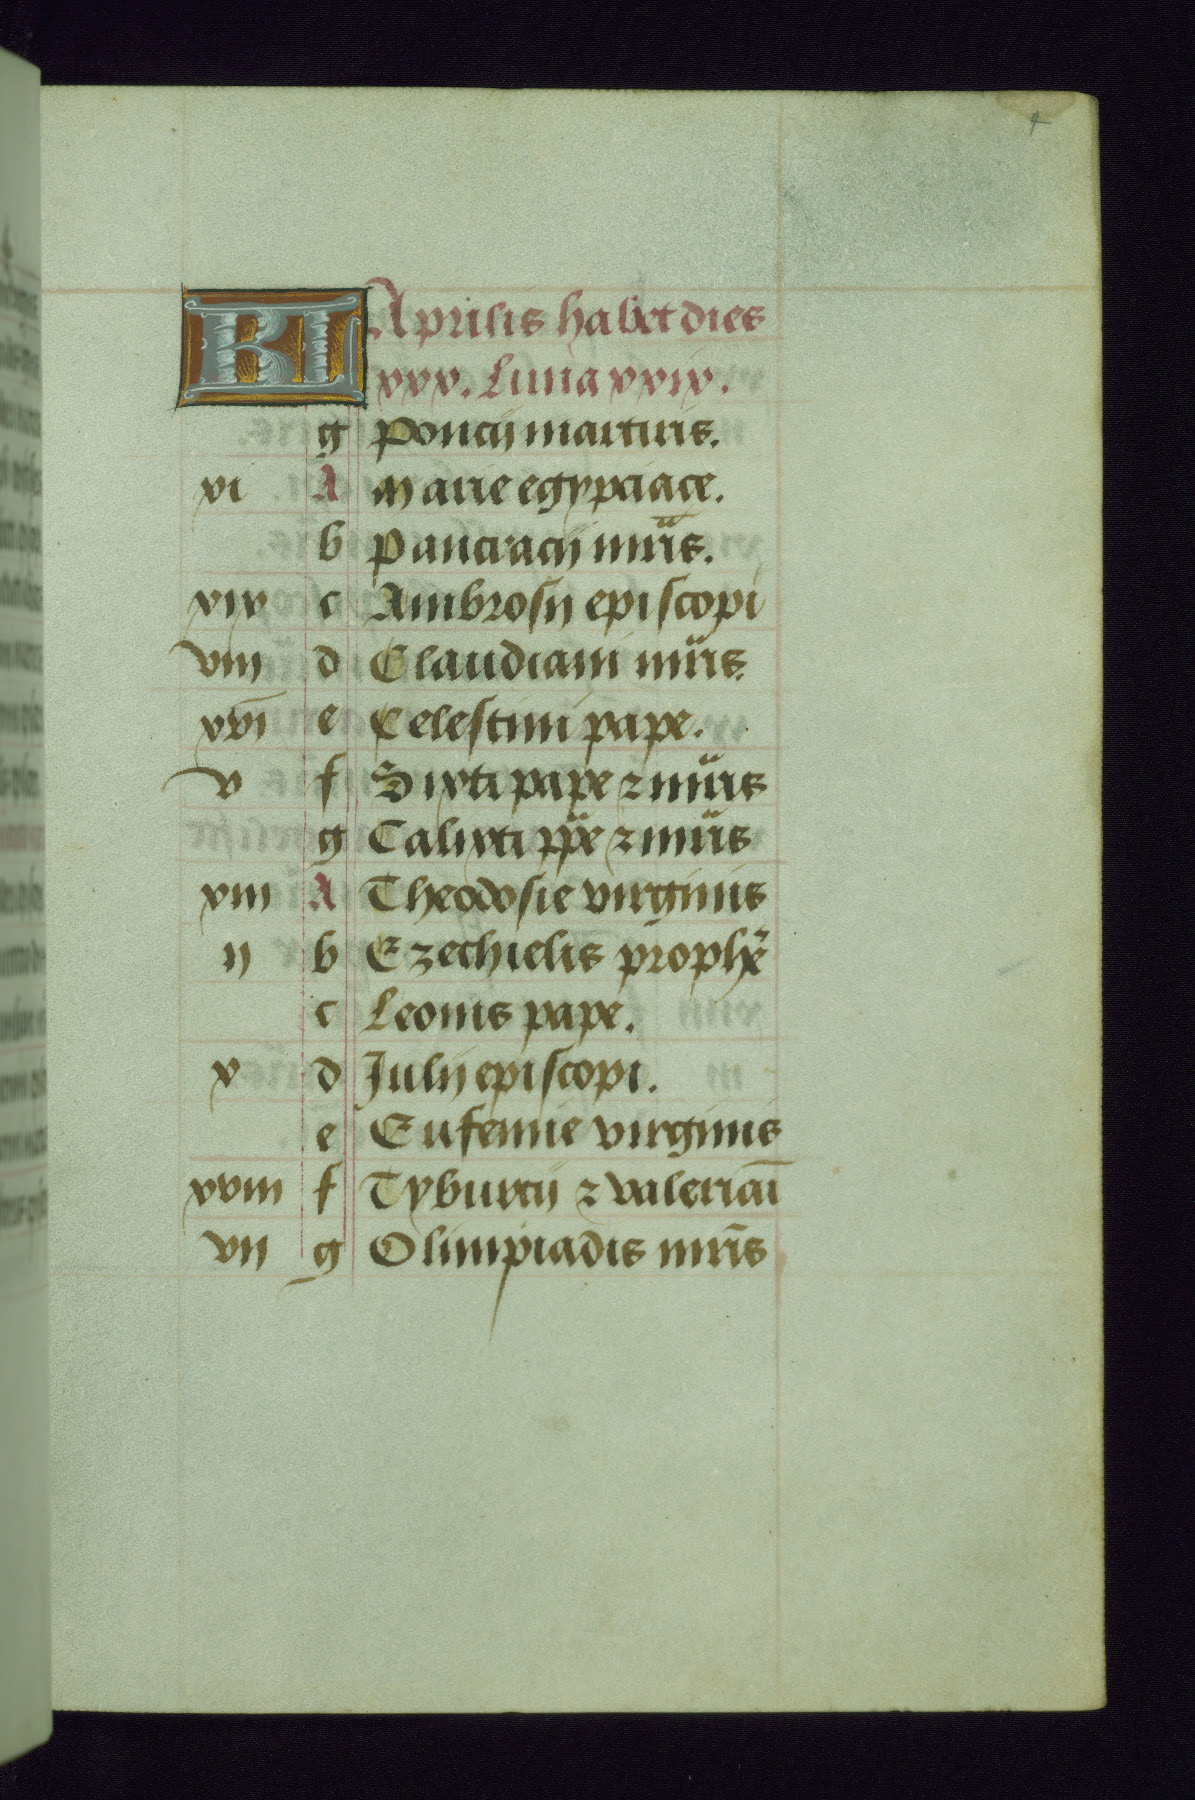 4
KL Aprilis habet dies
xxx. Luna xxix.
g Poncij martiris.
xi A Marie egypciace.
b Pancracij mris.
xix c Ambrosij episcopi
viii d Claudiani mris.
xvi e Celestini pape.
v f Sixti pape ⁊ mris
g Calixti ppe ⁊ mris
xiii A Theodosie virginis
ii b Ezechielis prophe
c Leonis pape.
x d Julij episcopi.
e Eufemie virginis
xviii f Tyburcij ⁊ valeriani
vii g Olimpiadis mris